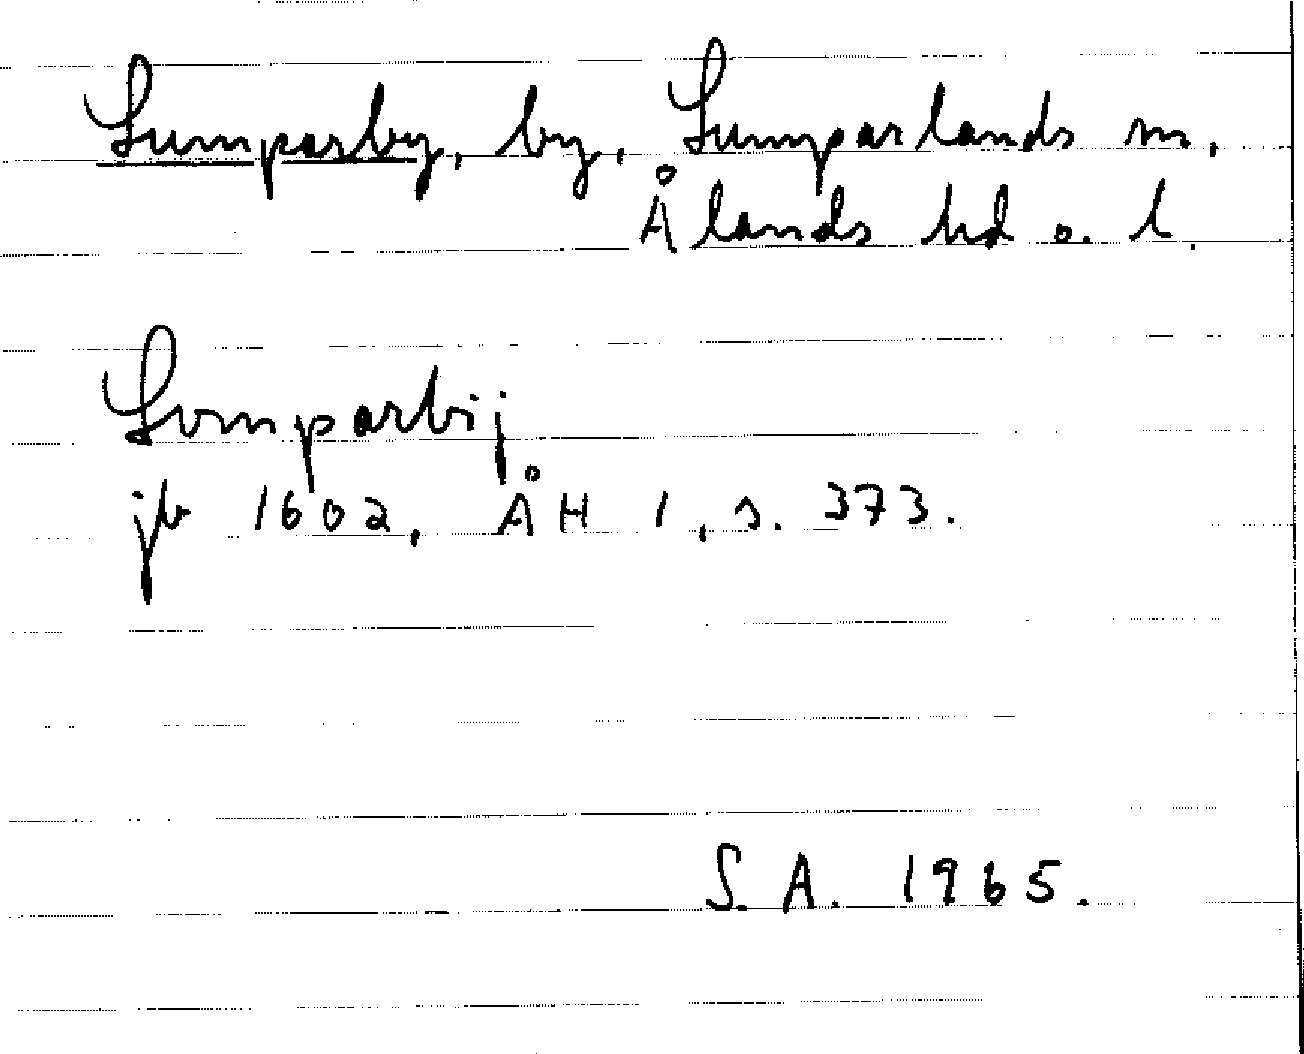 Lumparby, by, Lumparlands sn,
Ålands hd o. l.
Lomparbij
jb 1602, ÅH 1, s. 373.
S. A. 1965.